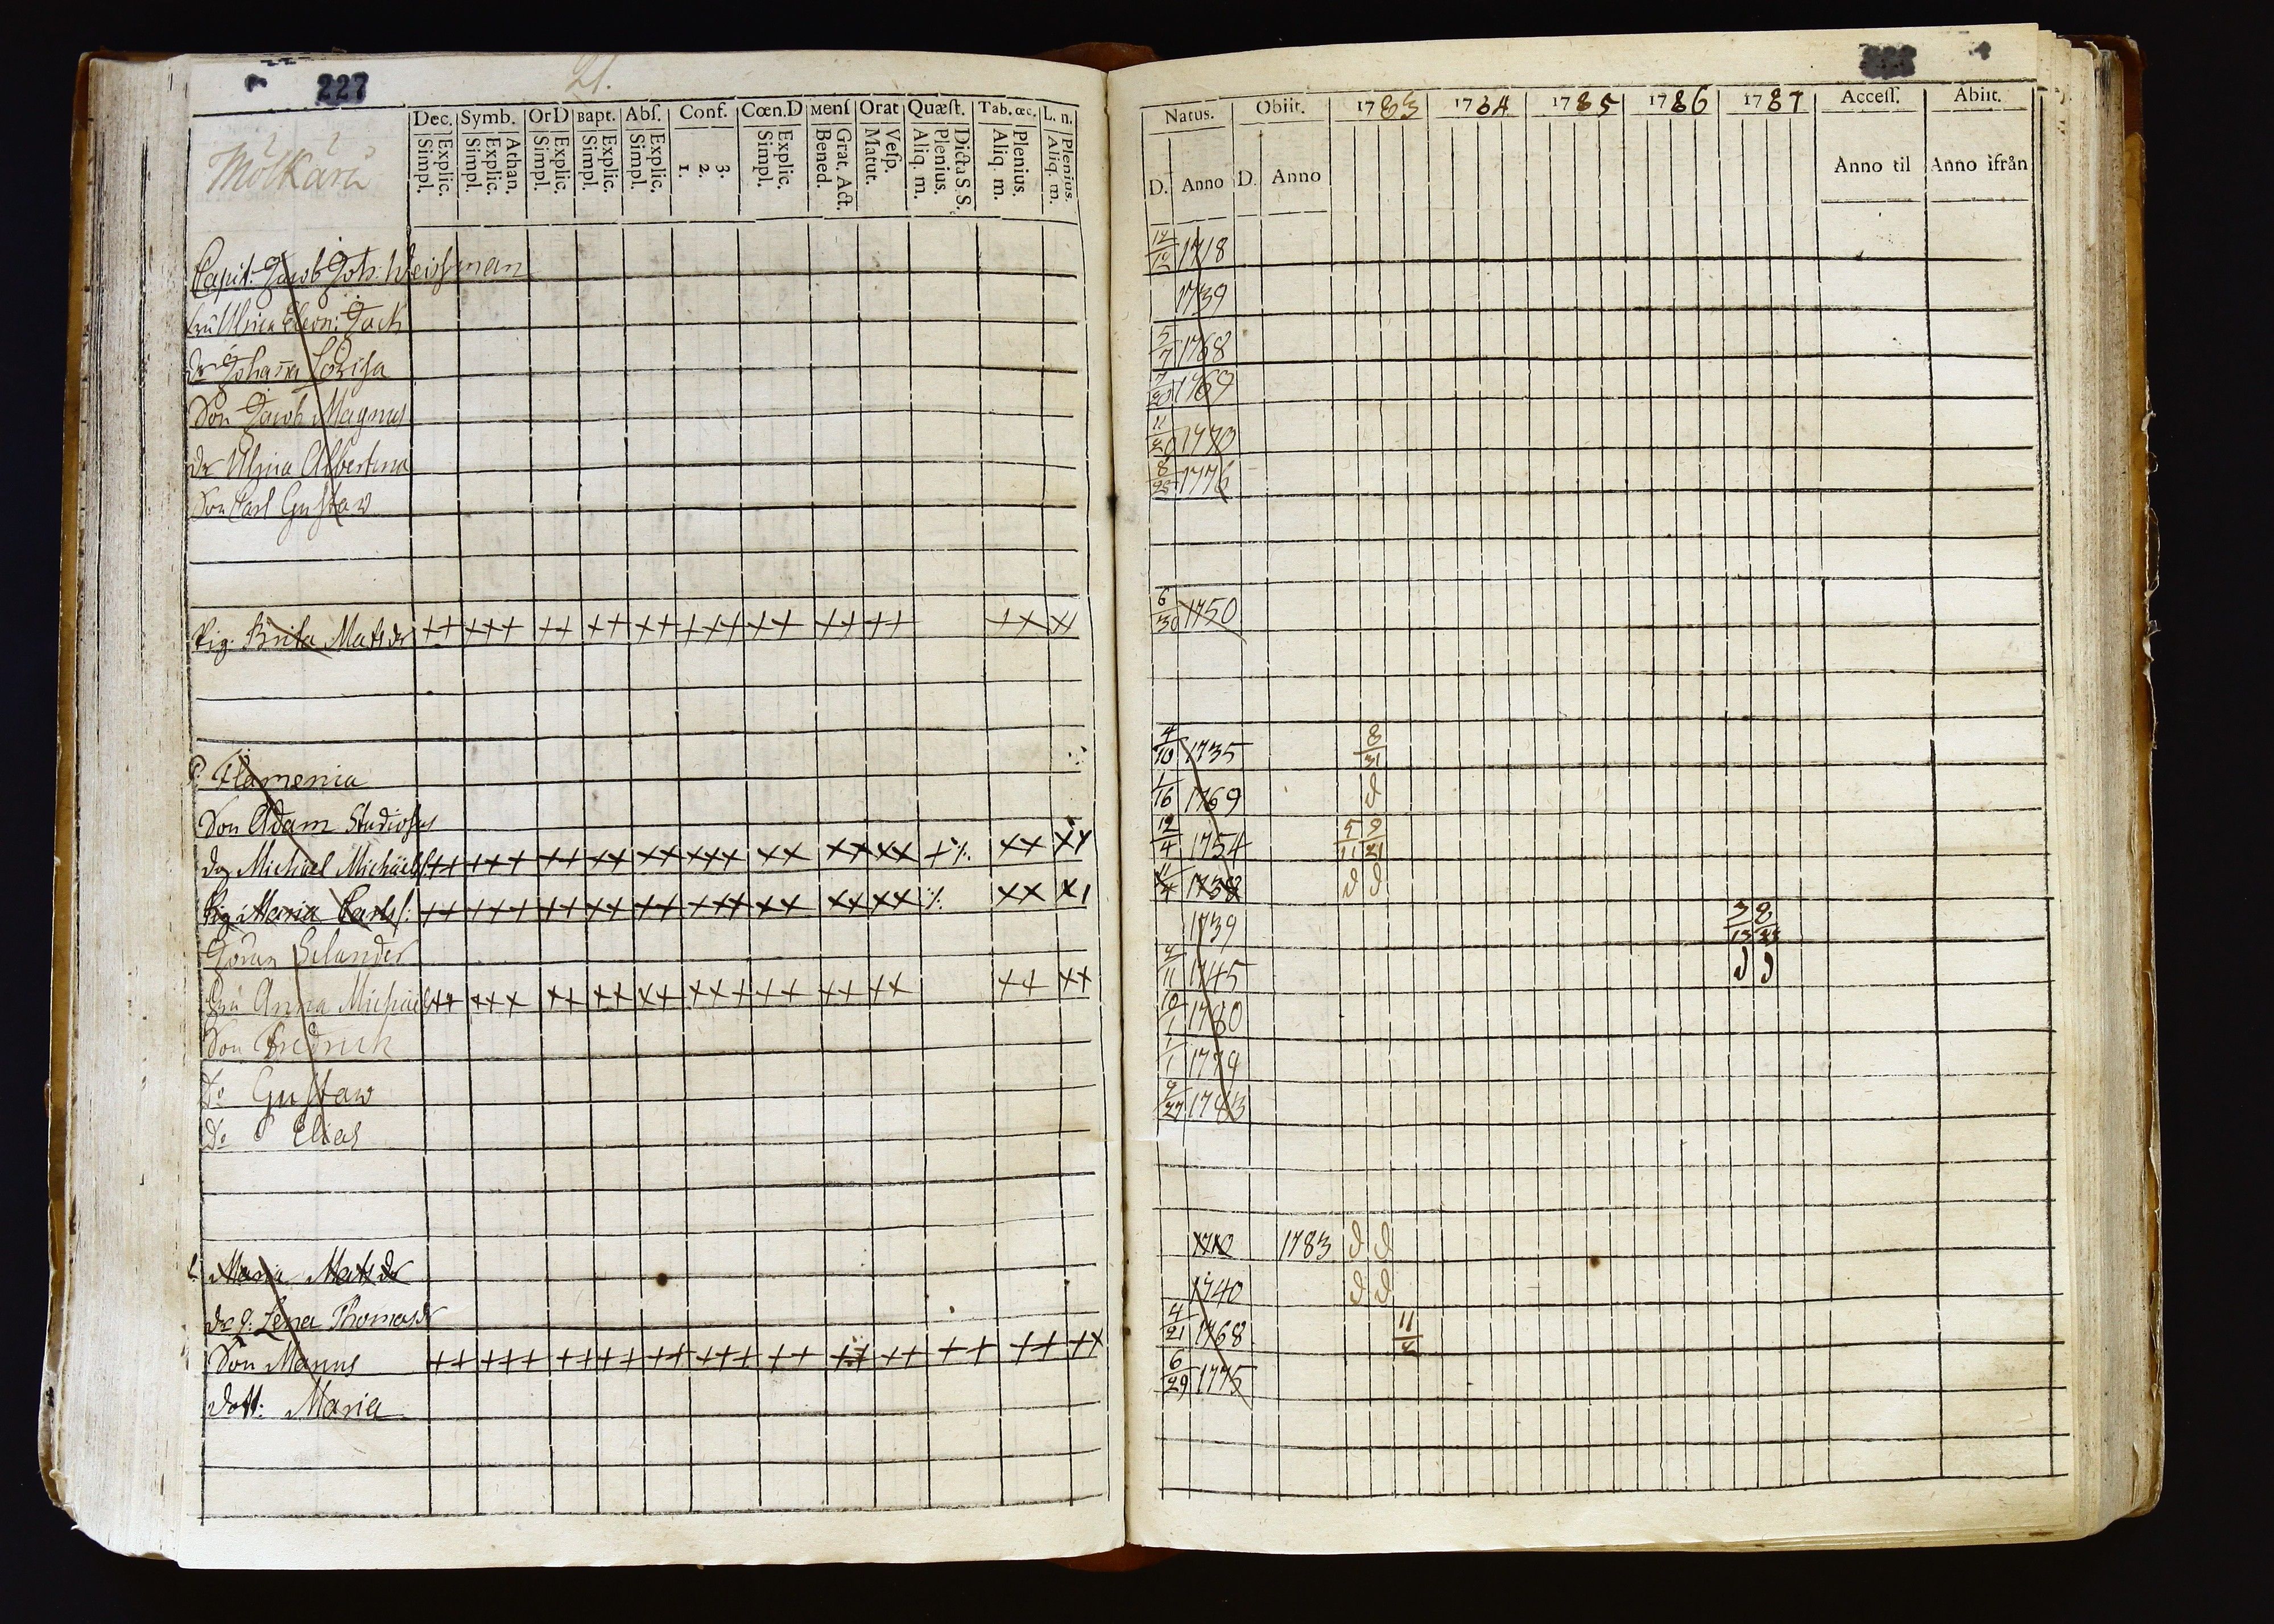 227
21.
Mölkärä
Dec. Symb. OrD Bapt. Abſ. Conf. Cœn.D Menſ Orat Quæſt. Tab. œc. L. n.
Explic. Simpl. Athan. Explic. Simpl. Explic. Simpl. Explic. Simpl. Explic. Simpl. 3. 2. 1. Explic. Simpl. Grat. Act. Bened. Veſp. Matut. Dicta S S. Plenius. Aliq. m. Plenius. Aliq. m. Plenius. Aliq. m.
Capit. Jacob Joh: Weissman
fru Ulrica Eleon: Jack
dr Johanna Lovisa
Son Jacob Magnus
dr Ulrica Albertina
Son Carl Gustaw
Pig. Brita Matsdr ++ +++ ++ ++ ++ +++ ++ ++ ++ ++ ++
Flamenia
Son Adam Studiosus
Michäel Michäels ++ +++ ++ ++ ++ +++ ++ ++ ++ + ./. ++ ++
Pig: Maria Carls ++ +++ ++ ++ ++ +++ ++ ++ ++ ./. ++ +1
Göran Selander
fru Anna Michäels ++ +++ ++ ++ ++ +++ ++ ++ ++ ++ ++
Son Fredrick
Do Gustaw
Do Elias
Maria Matsdr
dr Lena Thomasdr
Son Manus ++ +++ ++ ++ ++ +++ ++ ++ ++ ++ ++ ++
dott: Maria
Natus. Obiit. 1783 1784 1785 1786 1787 Acceſſ. Abiit.
D. Anno D. Anno Anno til Anno ifrån
12/12 1718
1739
5/7 1768
7/20 1769
11/20 1770
8/25 1776
6/30 1750
4/10 1735 8/31
1/16 1769 d
12/4 1754 5/11 9/21
11/4 1738 d d
1739 3/13 8/23
2/11 1745 d d
10/1 1780
1/1 1779
9/27 1783
1710 1783 d d
1740 d d
4/21 1768 11/2
6/29 1775